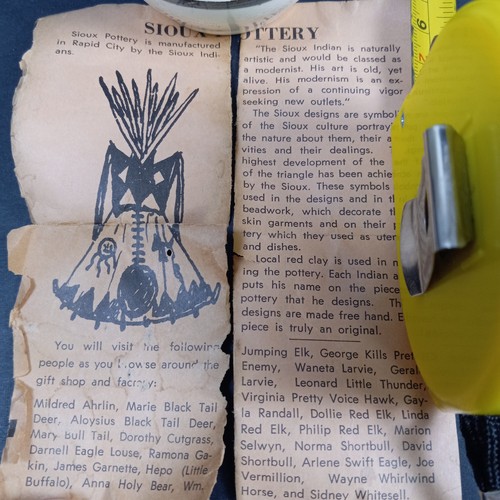 SIOUX POTTERY
Sioux Pottery is manufactured
in Rapid City by the Sioux Indi-
ans.
You will visit the following
people as you browse around the
gift shop and factory:
Mildred Ahrlin, Marie Black Tail
Deer, Aloysius Black Tail
Deer, Mary Bull Tail, Dorothy Cutgrass,
Darnell Eagle Louse, Ramona Ga-
kin, James Garnette, Hepo (Little
Buffalo), Anna Holy Bear, Wm.
"The Sioux Indian is naturally
artistic and would be classed as
a modernist. His art is old, yet
alive. His modernism is an ex-
pression of a continuing vigor
seeking new outlets."
The Sioux designs are symbol
of the Sioux culture portray
the nature about them, their a
vities and their dealings.
highest development of the
of the triangle has been achie
by the Sioux. These symbols
used in the designs and in th
beadwork, which decorate th
skin garments and on their p
tery which they used as uten
and dishes.
Local red clay is used in m
ing the pottery. Each Indian a
puts his name on the piece
pottery that he designs. Th
designs are made free hand. E
piece is truly an original.
Jumping Elk, George Kills Pret
Enemy, Waneta Larvie, Geral
Larvie, Leonard Little Thunder,
Virginia Pretty Voice Hawk, Gay-
la Randall, Dollie Red Elk, Linda
Red Elk, Philip Red Elk, Marion
Selwyn, Norma Shortbull, David
Shortbull, Arlene Swift Eagle, Joe
Vermillion, Wayne Whirlwind
Horse, and Sidney Whitesell
6